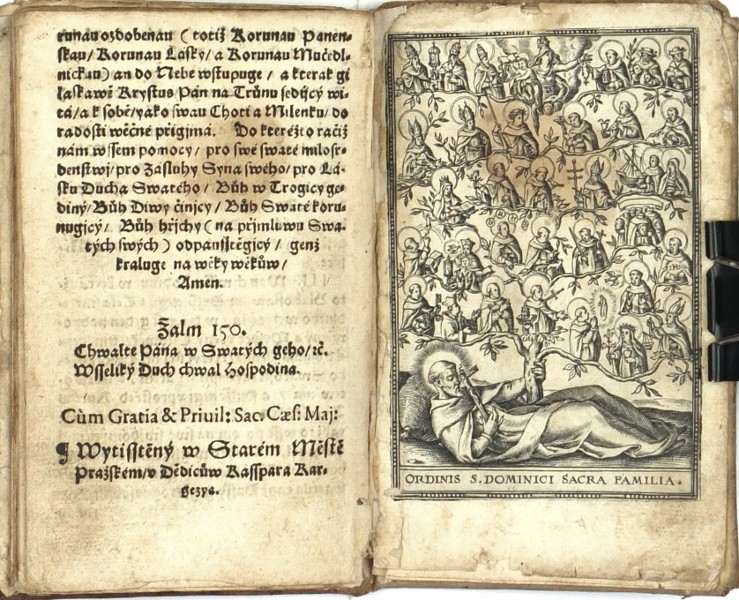 runau ozdobenau (totiž Korunau Panen-
skau/ Korunau Lásky/ a Korunau Mučedl-
nickau) an do Nebe wstupuge / a kterak gi
laskawě Krystus Pán na Trůnu sedijcý wi-
tá/ a k sobě/ yako swau Choti a Milenku/ do
radosti wěčné přigjmá. Do kteréžto račiž
nám wssem pomocy / pro swé swaté milosr-
denstwj/ pro Zásluhy Syna swého/ pro Lá-
sku Ducha Swatého / Bůh w Trogicy ge-
diný/ Bůh Diwy činjcy / Bůh Swaté koru-
nugjcý/ Bůh hřjchy (na přjmluwu Swa-
tých swých) odpausstěgjcý / genž
kraluge na wěky wěkůw /
Amen.
Žalm 150.
Chwalte Pána w Swatých geho/ ꝛč.
Wsseliký Duch chwal Hospodina.
Cùm Gratia & Privil: Sac. Cæs: Maj:
¶ Wytisstěný w Starém Městě
Pražském/ v Dědicůw Kasspara Kar-
gezya.
ORDINIS S. DOMINICI SACRA FAMILIA.